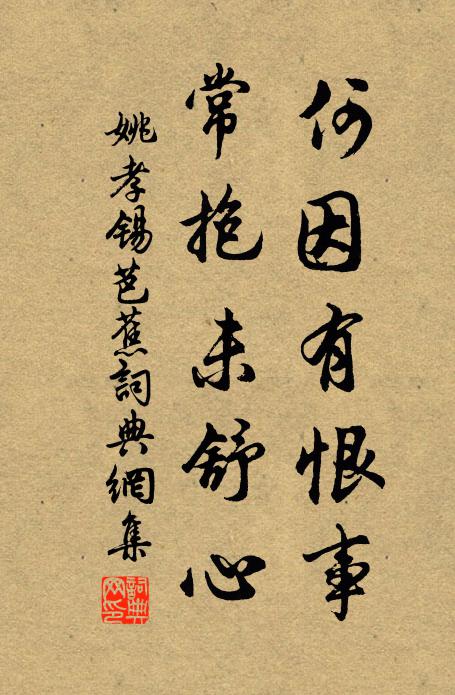 何因有恨事
常抱未舒心
姚孝錫芭蕉詞典網集
詞典網印